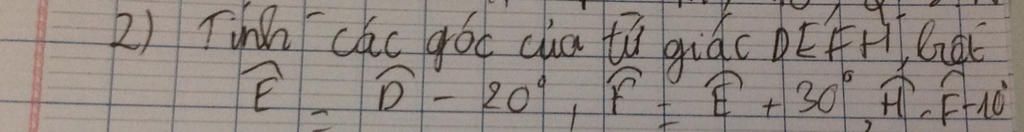 2) Tính các góc của tứ giác DEFH, biết
Ê = D̂ - 20°, F̂ = Ê + 30°, Ĥ = F̂ - 10°